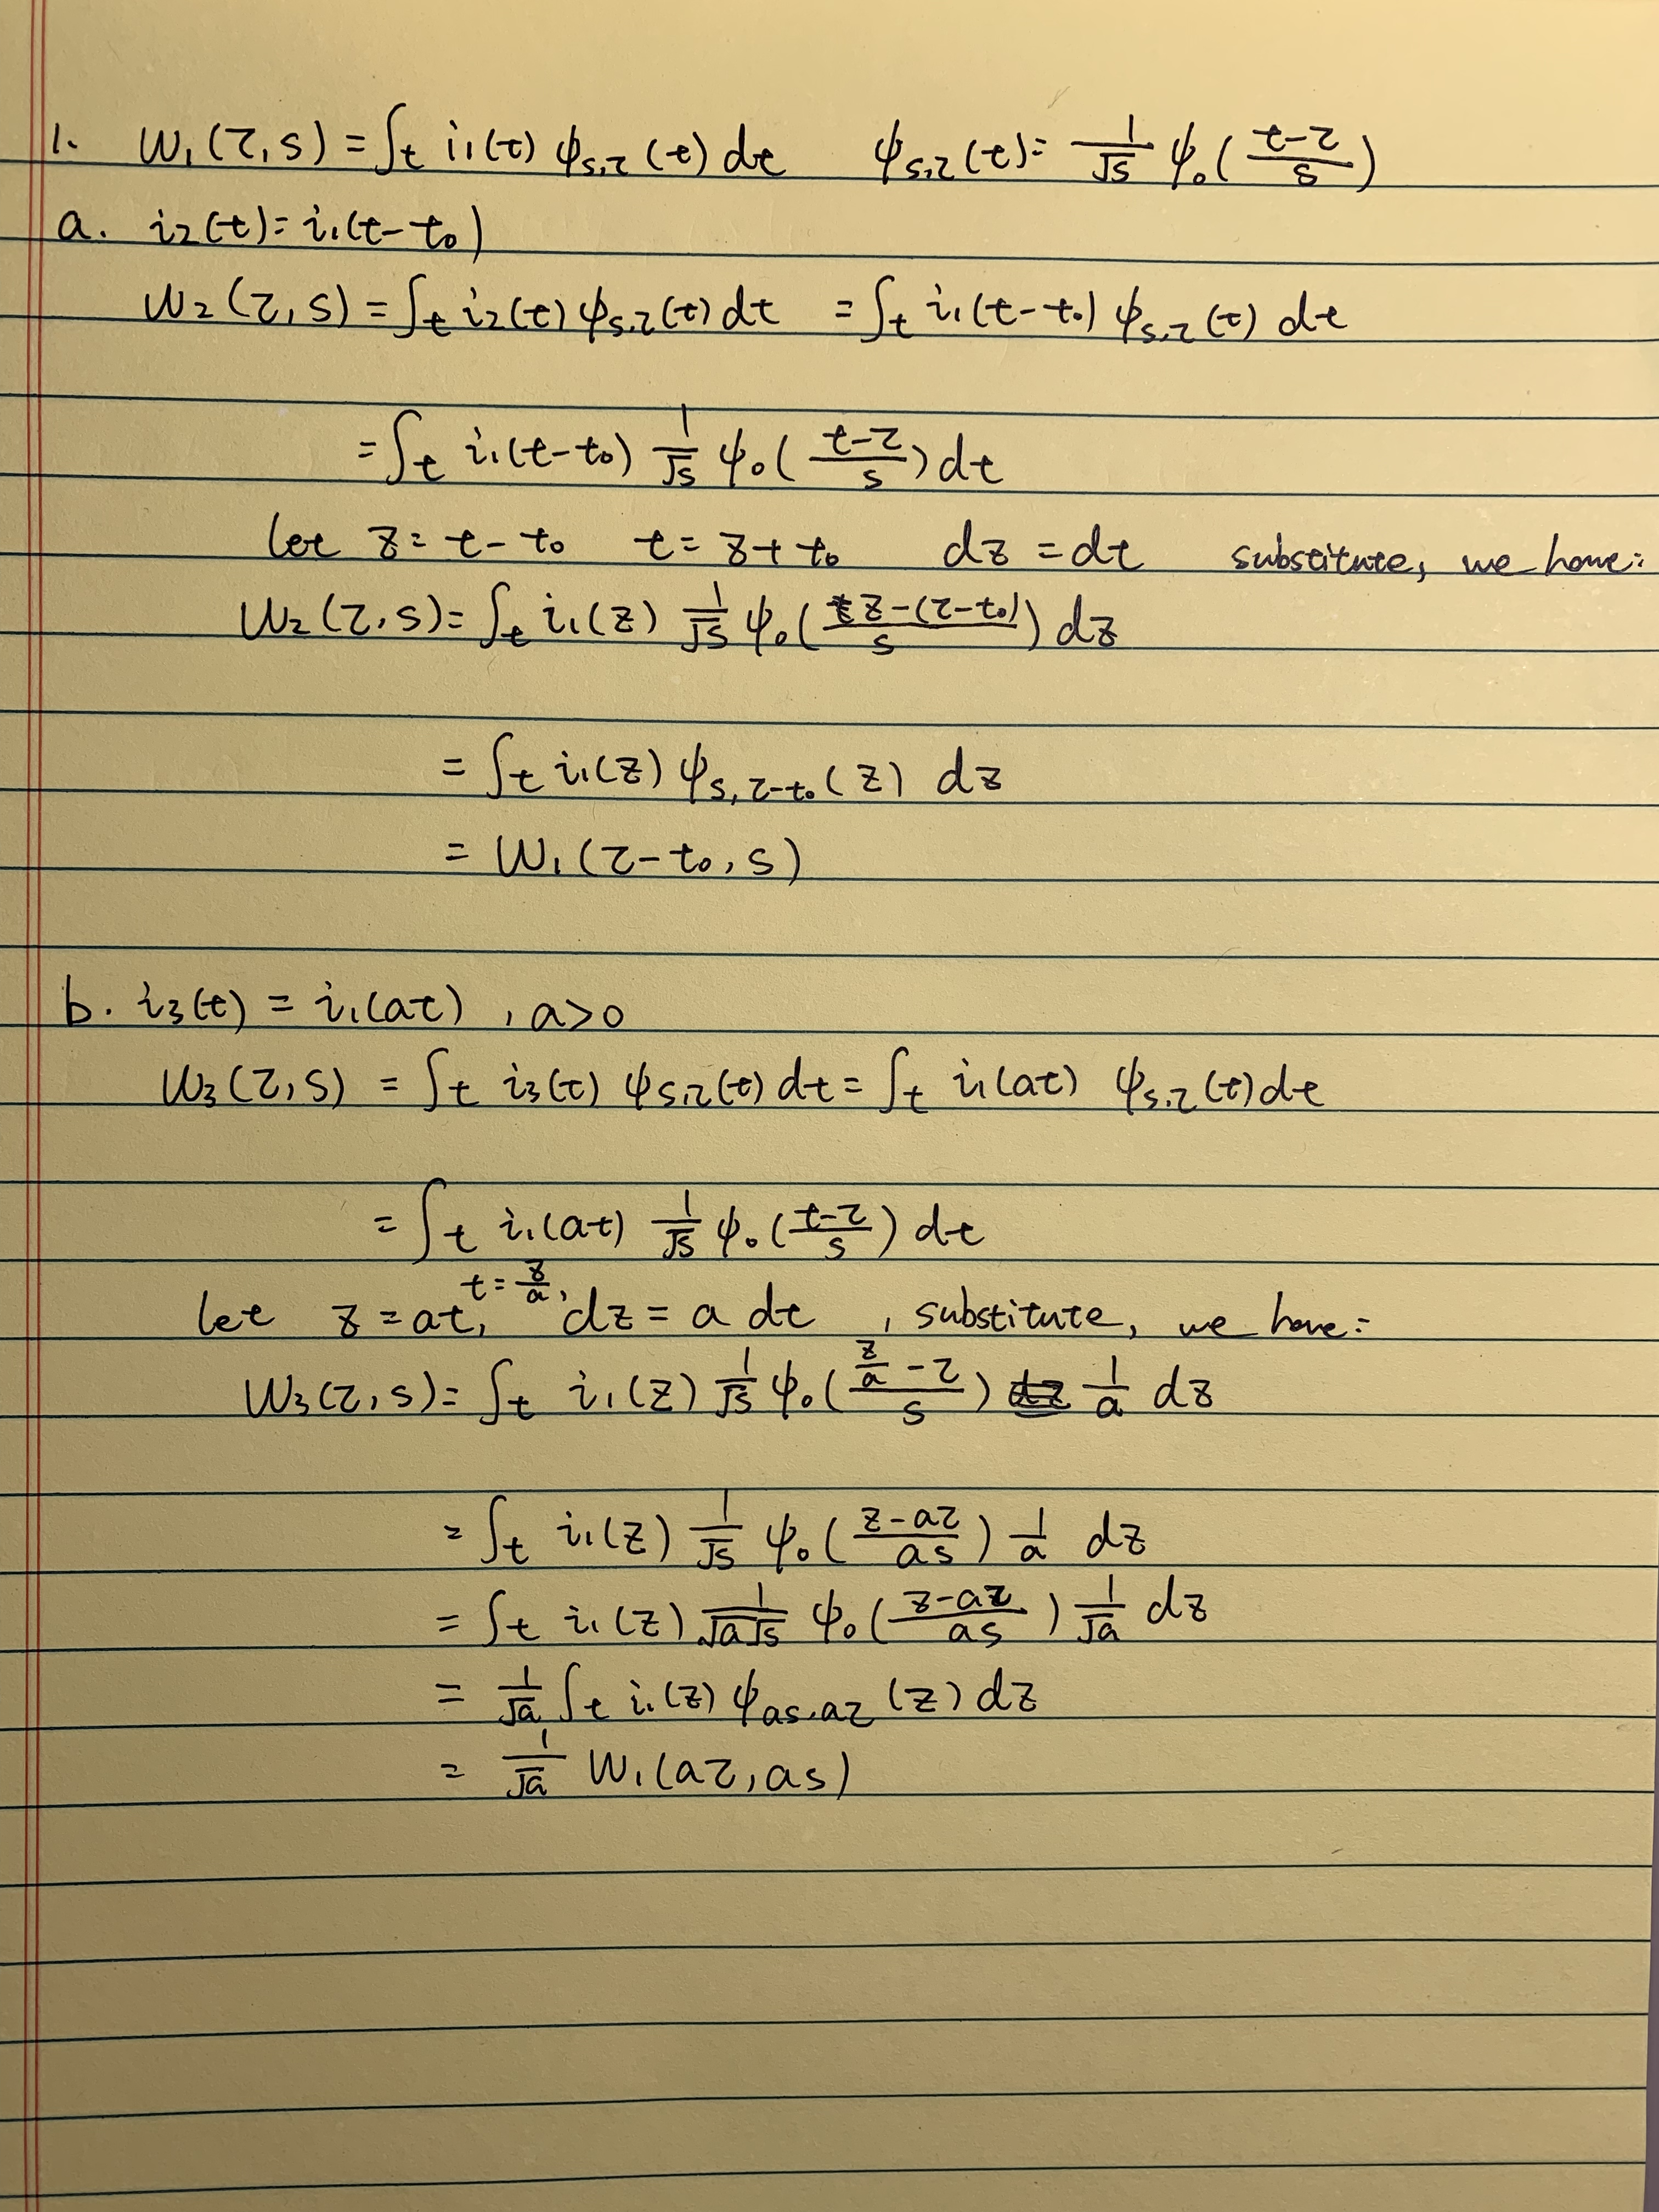 1. W₁(τ,s) = ∫ₜ i₁(t) ψₛ,τ(t) dt ψₛ,τ(t) = 1/√s ψ₀((t-τ)/s)
a. i₂(t) = i₁(t-t₀)
W₂(τ,s) = ∫ₜ i₂(t) ψₛ,τ(t) dt = ∫ₜ i₁(t-t₀) ψₛ,τ(t) dt
= ∫ₜ i₁(t-t₀) 1/√s ψ₀((t-τ)/s) dt
let z = t-t₀ t = z+t₀ dz = dt substitute, we have:
W₂(τ,s) = ∫ₜ i₁(z) 1/√s ψ₀((z-(τ-t₀))/s) dz
= ∫ₜ i₁(z) ψ_{s,τ-t₀}(z) dz
= W₁(τ-t₀, s)
b. i₃(t) = i₁(at) , a>0
W₃(τ,s) = ∫ₜ i₃(t) ψₛ,τ(t) dt = ∫ₜ i₁(at) ψₛ,τ(t) dt
= ∫ₜ i₁(at) 1/√s ψ₀((t-τ)/s) dt
let z = at, t = z/a, dz = a dt , substitute, we have:
W₃(τ,s) = ∫ₜ i₁(z) 1/√s ψ₀((z/a - τ)/s) 1/a dz
= ∫ₜ i₁(z) 1/√s ψ₀((z-aτ)/as) 1/a dz
= ∫ₜ i₁(z) 1/(√a√s) ψ₀((z-aτ)/as) 1/√a dz
= 1/√a ∫ₜ i₁(z) ψ_{as,aτ}(z) dz
= 1/√a W₁(aτ, as)